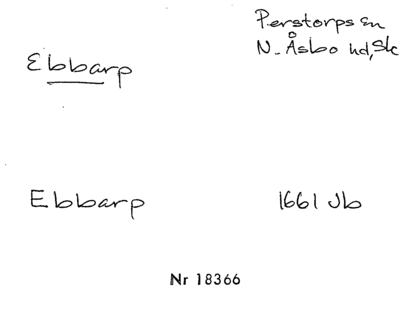 Perstorps sn
N. Åsbo hd, Sk
Ebbarp
Ebbarp 1661 Jb
Nr 18366